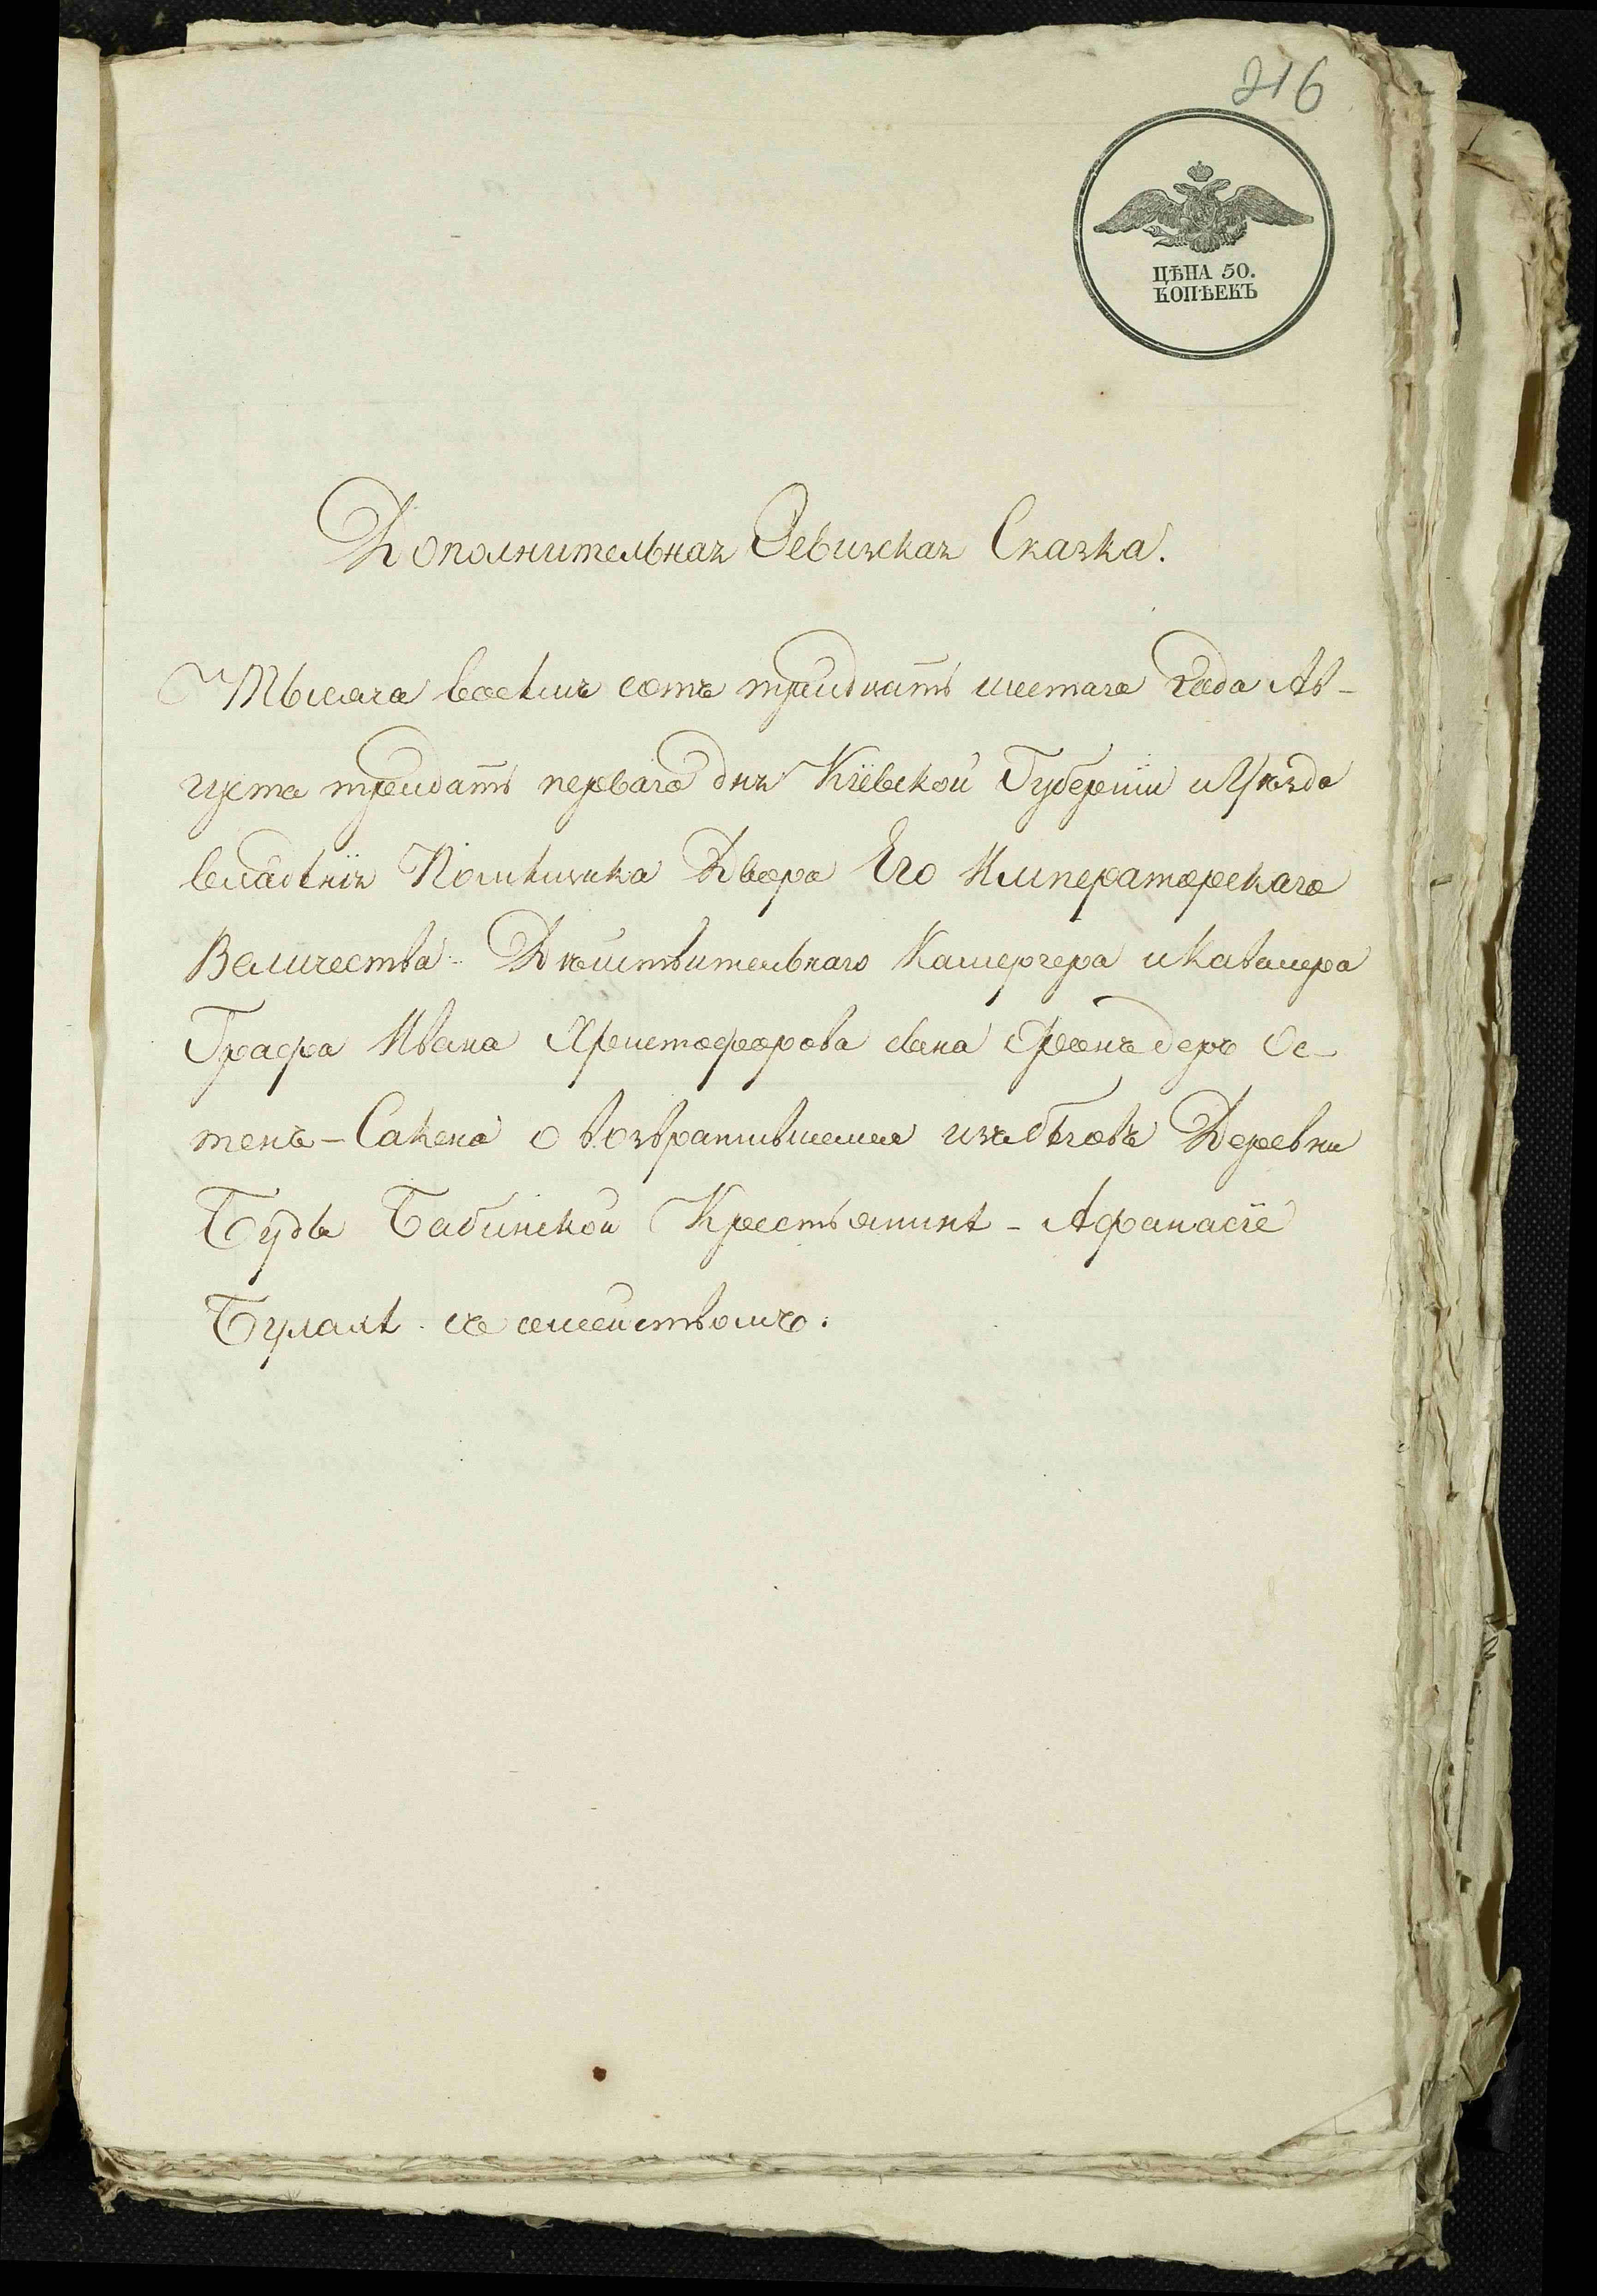 216
ЦѢНА 50.
КОПѢЕКЪ
Дополнительная Ревизская Сказка.
Тысяча восемъ сотъ тридцать шестаго Года Ав-
густа тридцать перваго дня Кіевской Губерніи и Уѣзда
владѣнія Помѣщика Двора Его Императорскаго
Величества Дѣйствительнаго Камергера и Кавалера
Графа Ивана Христофорова сына Фонъ деръ Ос-
тенъ-Сакена о возвратившемся изъ бѣговъ Деревни
Буды Бабинской Крестьянинѣ - Афанасіе
Булахѣ съ семействомъ.